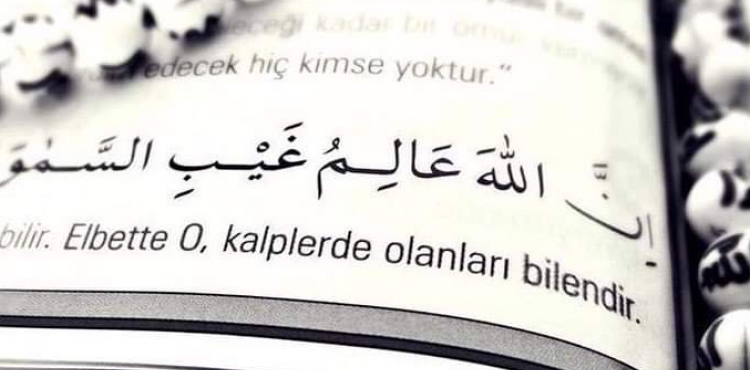 eceği kadar bir ömür
edecek hiç kimse yoktur."
إِنَّ اللّٰهَ عَالِمُ غَيْبِ السَّمٰوَ
bilir. Elbette O, kalplerde olanları bilendir.